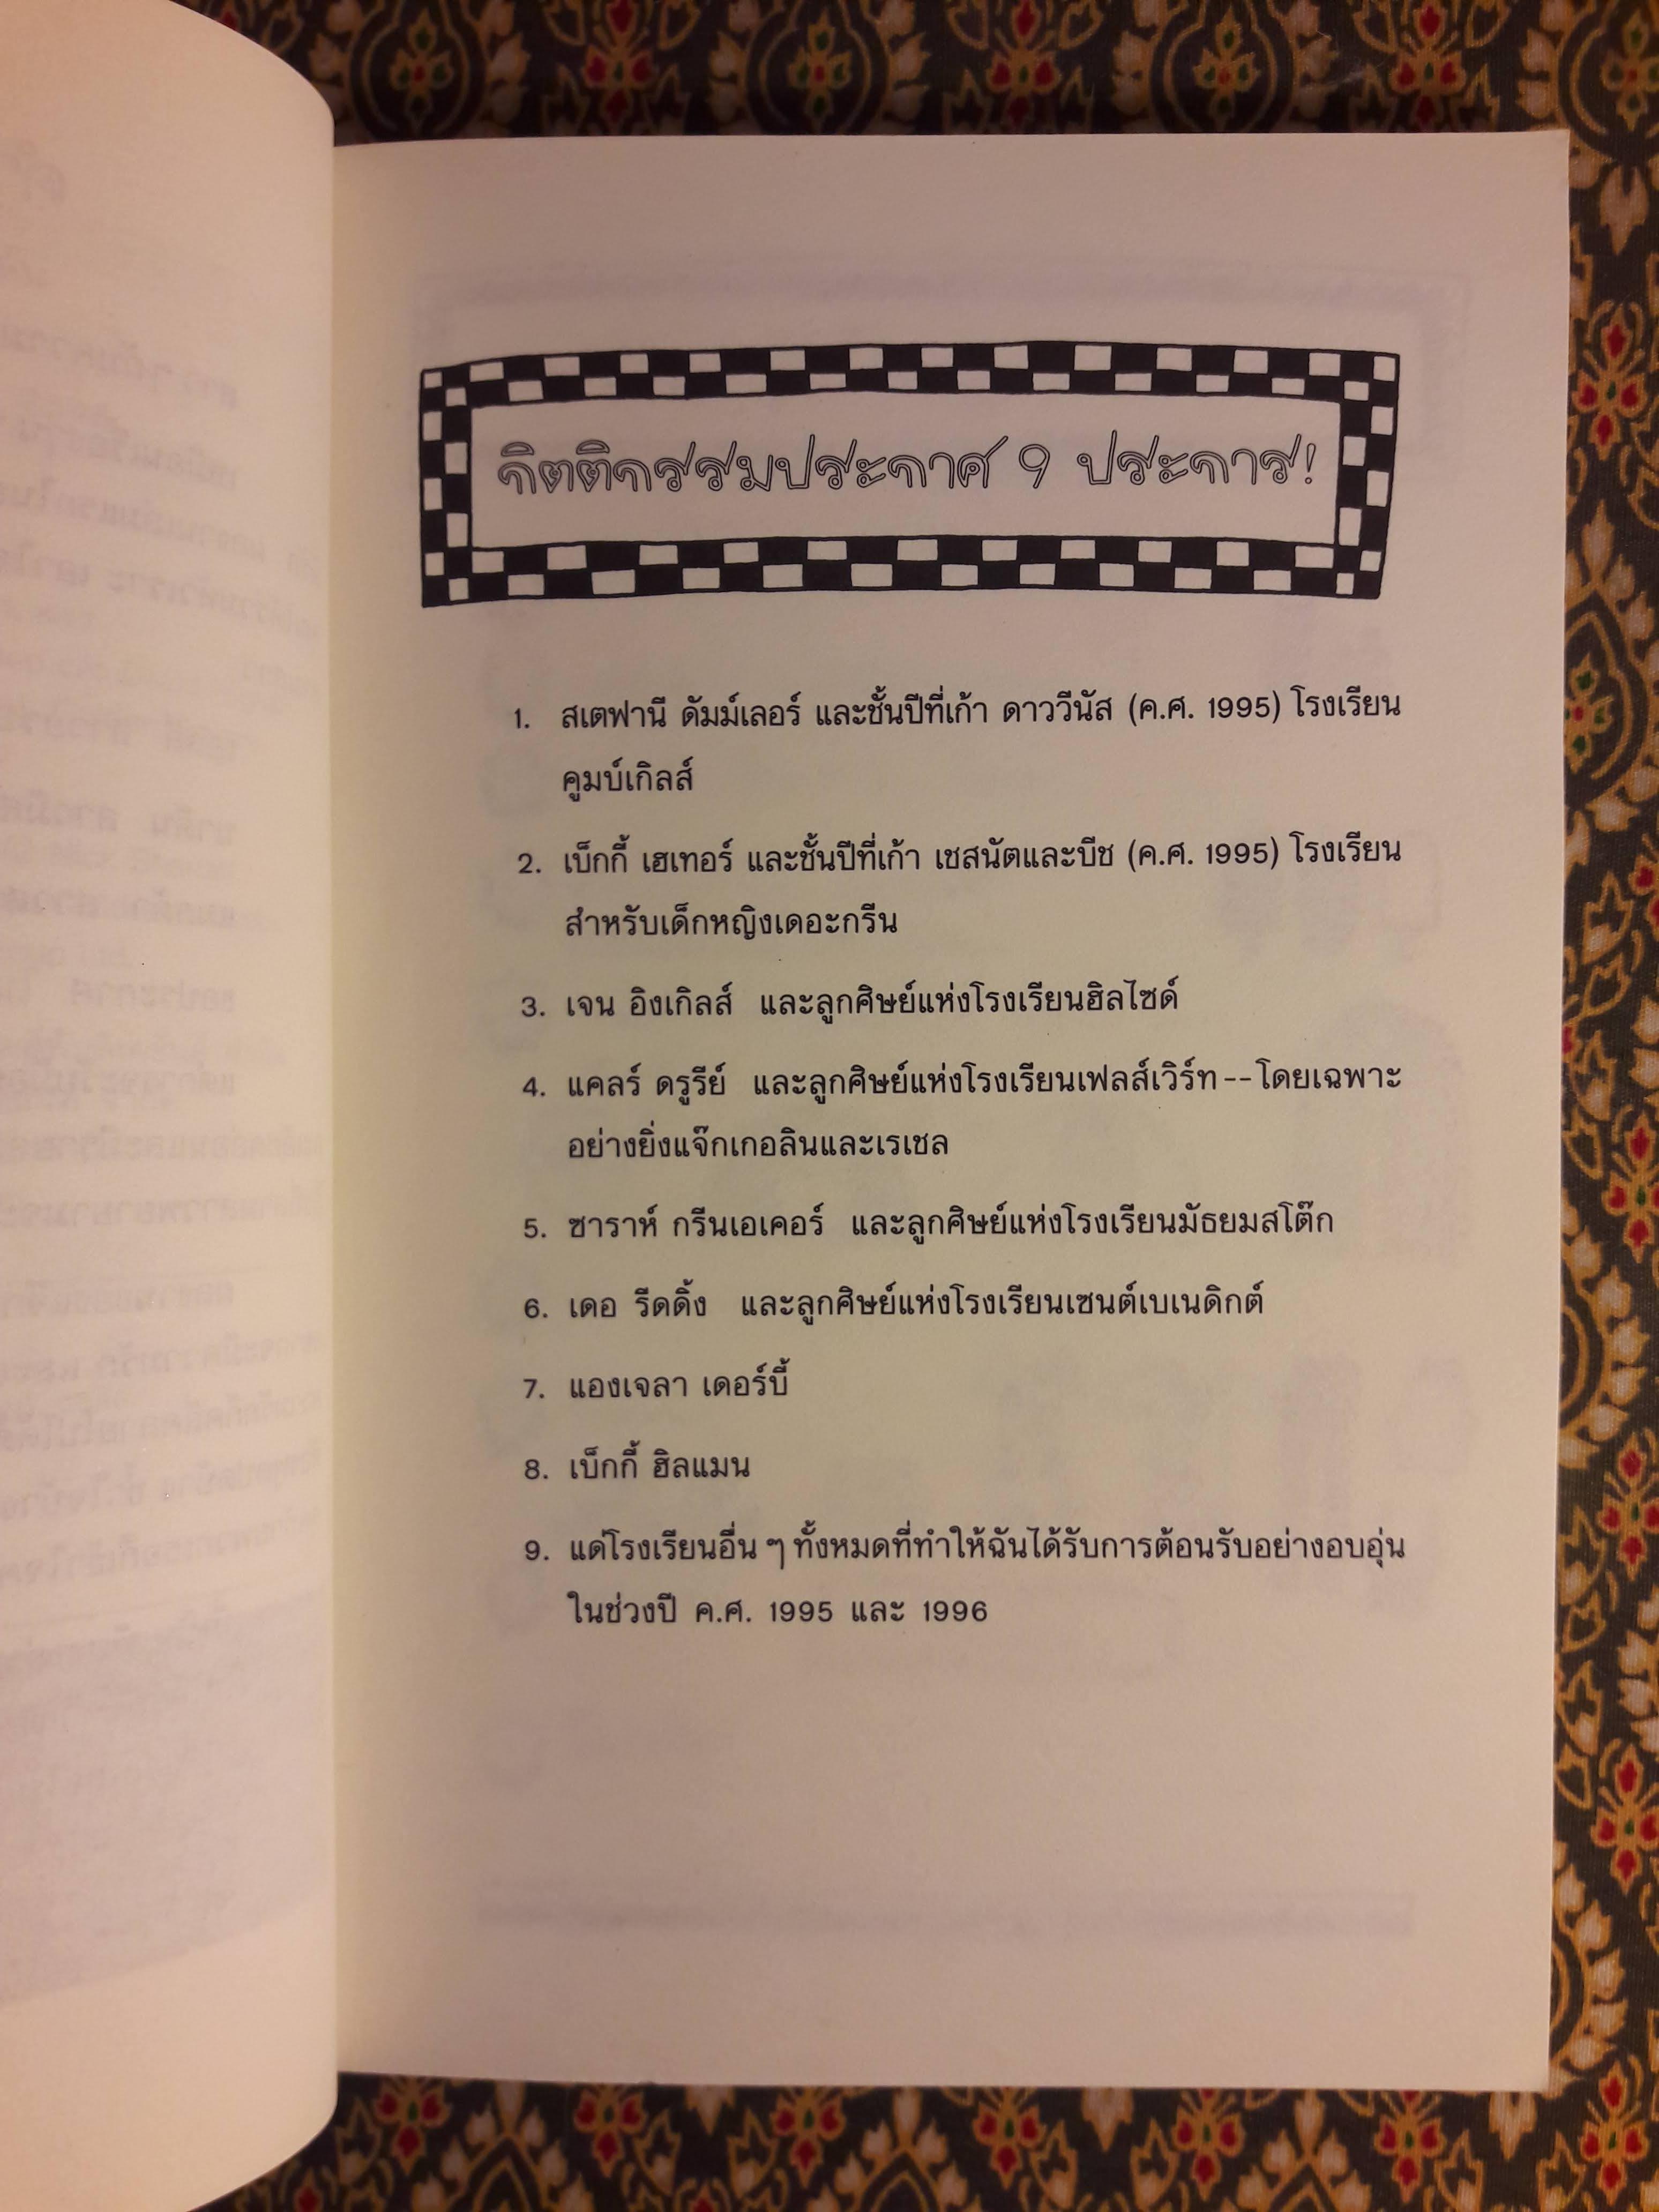 กิตติกรรมประกาศ 9 ประการ!
1. สเตฟานี ดัมม์เลอร์ และชั้นปีที่เก้า ดาววีนัส (ค.ศ. 1995) โรงเรียน
คูมบ์เกิลส์
2. เบ็กกี้ เฮเทอร์ และชั้นปีที่เก้า เชสนัตและบีช (ค.ศ. 1995) โรงเรียน
สำหรับเด็กหญิงเดอะกรีน
3. เจน อิงเกิลส์ และลูกศิษย์แห่งโรงเรียนฮิลไซด์
4. แคลร์ ดรูรีย์ และลูกศิษย์แห่งโรงเรียนเฟลส์เวิร์ท--โดยเฉพาะ
อย่างยิ่งแจ๊กเกอลินและเรเชล
5. ซาราห์ กรีนเอเคอร์ และลูกศิษย์แห่งโรงเรียนมัธยมสโต๊ก
6. เดอ รีดดิ้ง และลูกศิษย์แห่งโรงเรียนเซนต์เบเนดิกต์
7. แองเจลา เดอร์บี้
8. เบ็กกี้ ฮิลแมน
9. แด่โรงเรียนอื่น ๆ ทั้งหมดที่ทำให้ฉันได้รับการต้อนรับอย่างอบอุ่น
ในช่วงปี ค.ศ. 1995 และ 1996